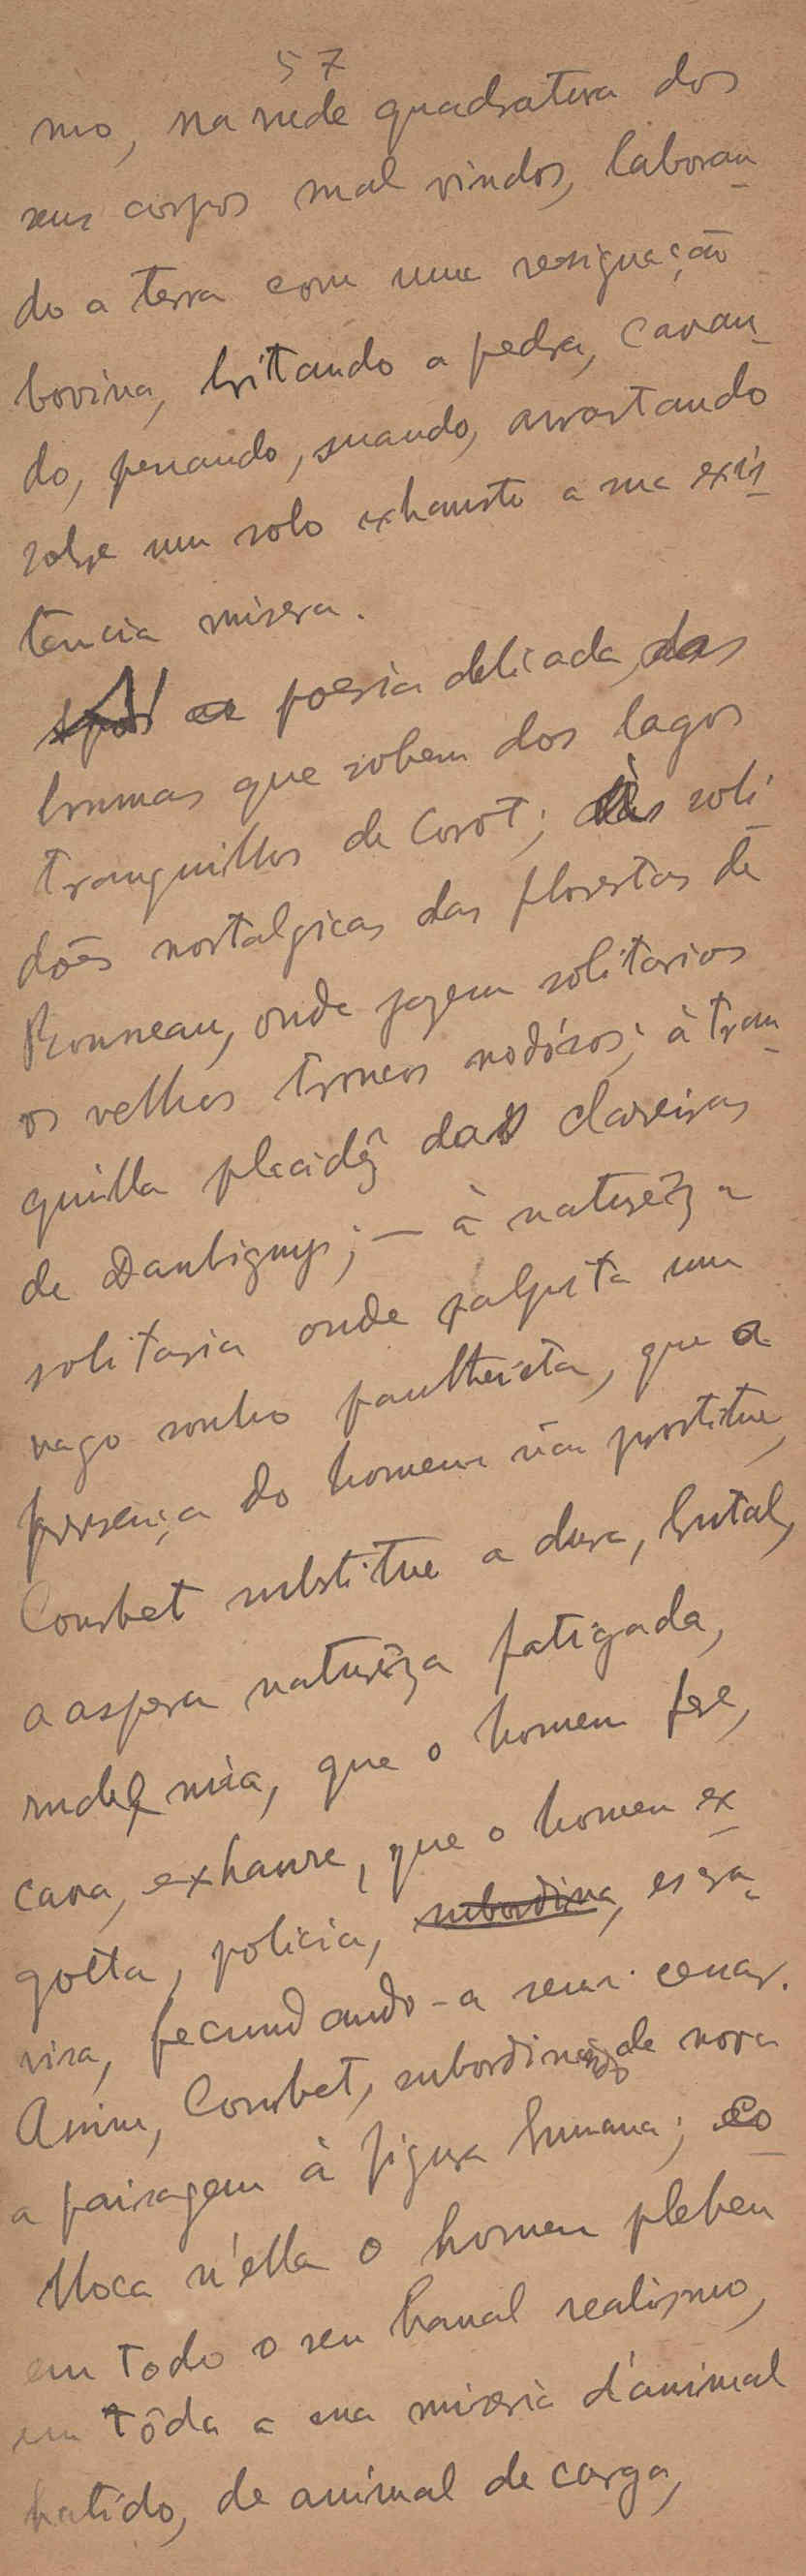 57
mo, na rude quadratura dos
seus corpos mal vindos, laboran-
do a terra com uma resignação
bovina, britando a pedra, cavan-
do, penando, suando, arrastando
sobre um solo exhausto a sua exis-
tencia misera.
Á poesia delicada das
brumas que sobem dos lagos
tranquillos de Corot; ás soli-
dões nostalgicas das florestas de
Rousseau, onde jazem solitarios
os velhos troncos nodósos; à tran-
quilla placidez das clareiras
de Daubigny; — à naturêza
solitaria onde palpita um
vago sonho pantheista, que a
presença do homem não prostitue,
Courbet substitue a dura, brutal,
a aspera naturêza fatigada,
rude, núa, que o homem fere,
cava, exhaure, que o homem ex-
gotta, policia, subordina, escra-
visa, fecundando-a sem cessar.
Assim, Courbet, subordinando de nova
a paisagem à figura humana; co-
lloca n'ella o homem plebeu
em todo o seu banal realismo,
em tôda a sua miseria d'animal
batido, de animal de carga,